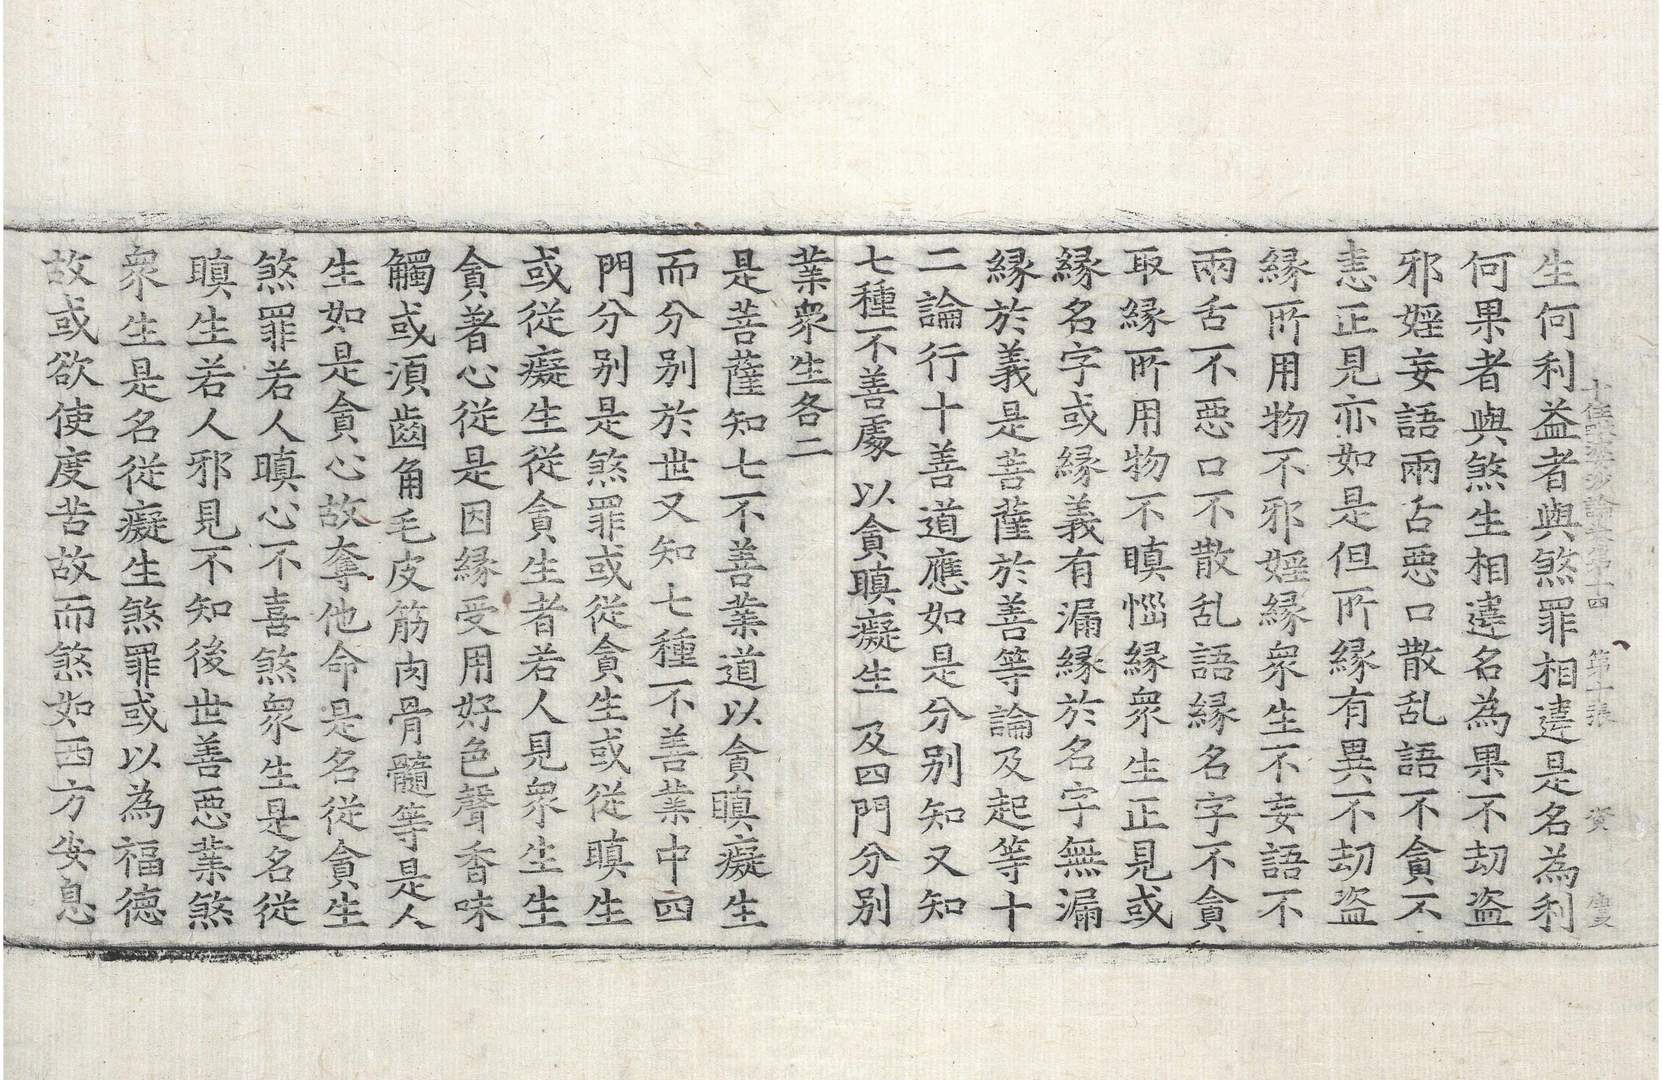 十住毗婆沙論卷第十四 第十張 資 慶
生何利益者與煞罪相違是名為利
何果者與煞生相違名為果不刧盜
邪婬妄語兩舌惡口散乱語不貪不
恚正見亦如是但所緣有異不刧盜
緣所用物不邪婬緣衆生不妄語不
兩舌不惡口不散乱語緣名字不貪
取緣所用物不瞋惱緣衆生正見或
緣名字或緣義有漏緣於名字無漏
緣於義是菩薩於善等論及起等十
二論行十善道應如是分別知又知
七種不善處 以貪瞋癡生 及四門分別
業衆生各二
是菩薩知七不善業道以貪瞋癡生
而分別於世又知七種不善業中四
門分別是煞罪或從貪生或從瞋生
或從癡生從貪生者若人見衆生生
貪著心從是因緣受用好色聲香味
觸或須齒角毛皮筋肉骨髓等是人
生如是貪心故奪他命是名從貪生
煞罪若人瞋心不喜煞衆生是名從
瞋生若人邪見不知後世善惡業煞
衆生是名從癡生煞罪或以為福德
故或欲使度苦故而煞如西方安息